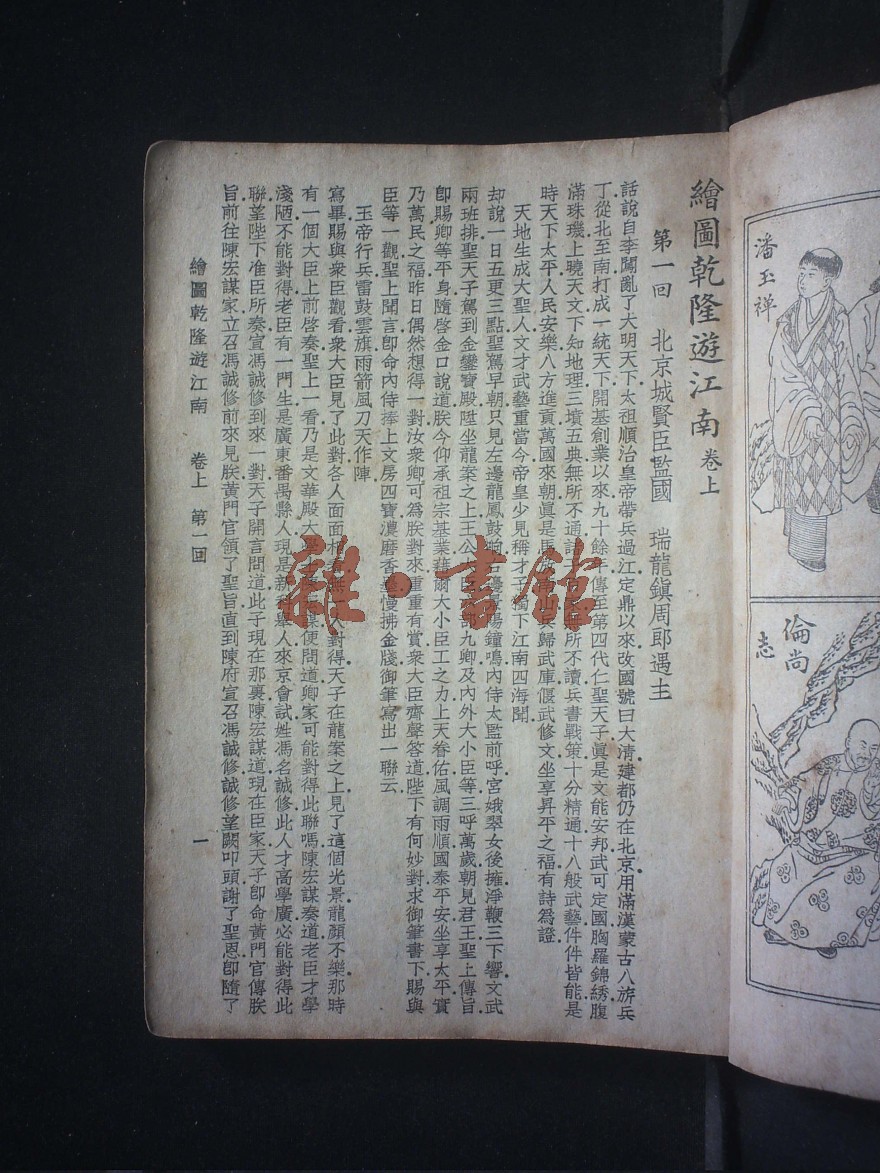 繪圖乾隆遊江南 卷上
第一回 北京城賢臣監國 瑞龍鎮周郎遇主
話說自李闖亂了大明天下太祖順治皇帝帶兵過江定鼎以來改國號曰大清建都仍在北京用滿漢蒙古八旂兵
丁從北至南打成一統天下開基創業以來九十餘年傳至第四代仁聖天子眞是文能安邦武可定國胸羅錦綉腹
滿珠璣上曉天文下知地理三墳五典無所不通詩 無所不讀兵書戰策十分精通十八般武藝件件皆能是
時天下太平人民安樂八方進貢萬國來朝眞是馬 歸武庫偃武修文坐享昇平之福有詩爲證
天地生成大聖人文才武藝重當今帝皇少見稱才子獨下江南四海聞
却說一日五更三點聖駕早朝只見左邊龍鳳鼓响右邊 陽鐘鳴內侍太監前呼宮娥翠女後擁凈鞭三下響文武
兩班排聖天子駕到金鑾寶殿陞坐龍案之上王公 部九卿及內外大小臣等三呼萬歲朝見君王聖上傳旨
卽賜卿等平身隨啓金口說道朕今仰承祖宗基業藉爾大小臣工之力上天眷佑風調雨順國泰平安坐享太平實
乃萬民之福昨日偶然想得一對汝衆卿可爲朕對來重重有賞衆大臣齊聲答道陛下有何妙對求御筆書下賜與
臣等一觀聖上聞言卽命內侍捧上文房四寶濃磨香 慢拂金牋御筆寫出一聯云
玉帝行兵雷鼓雲旗雨箭風刀天作陣
寫畢賜與衆臣觀看衆大臣見了此對各人面面相 無一人對得天子在龍案之上見了這個光景龍顏不樂那時
有一個大臣上前啓奏聖上一看乃是文華殿大 謀便問道卿家可能對得此聯嗎陳宏謀奏道老臣才學
淺陋不能對得老臣有一門生是廣東番禺縣人現是新科舉人來京會試姓馮名誠修此人才高學廣必能對得此
聯望陛下准臣所奏宣馮誠修到來一對天子開言問道此子現在那裏陳宏謀道現在臣家天子卽命黃門官傳朕
旨前往陳宏謀家立召馮誠修前來見朕黃門官領了聖旨直到陳府宣召馮誠修誠修望闕叩頭謝了聖恩卽隨了
繪圖乾隆遊江南 卷上 第一回 一
潘玉禪
倫尚志
雜·書館